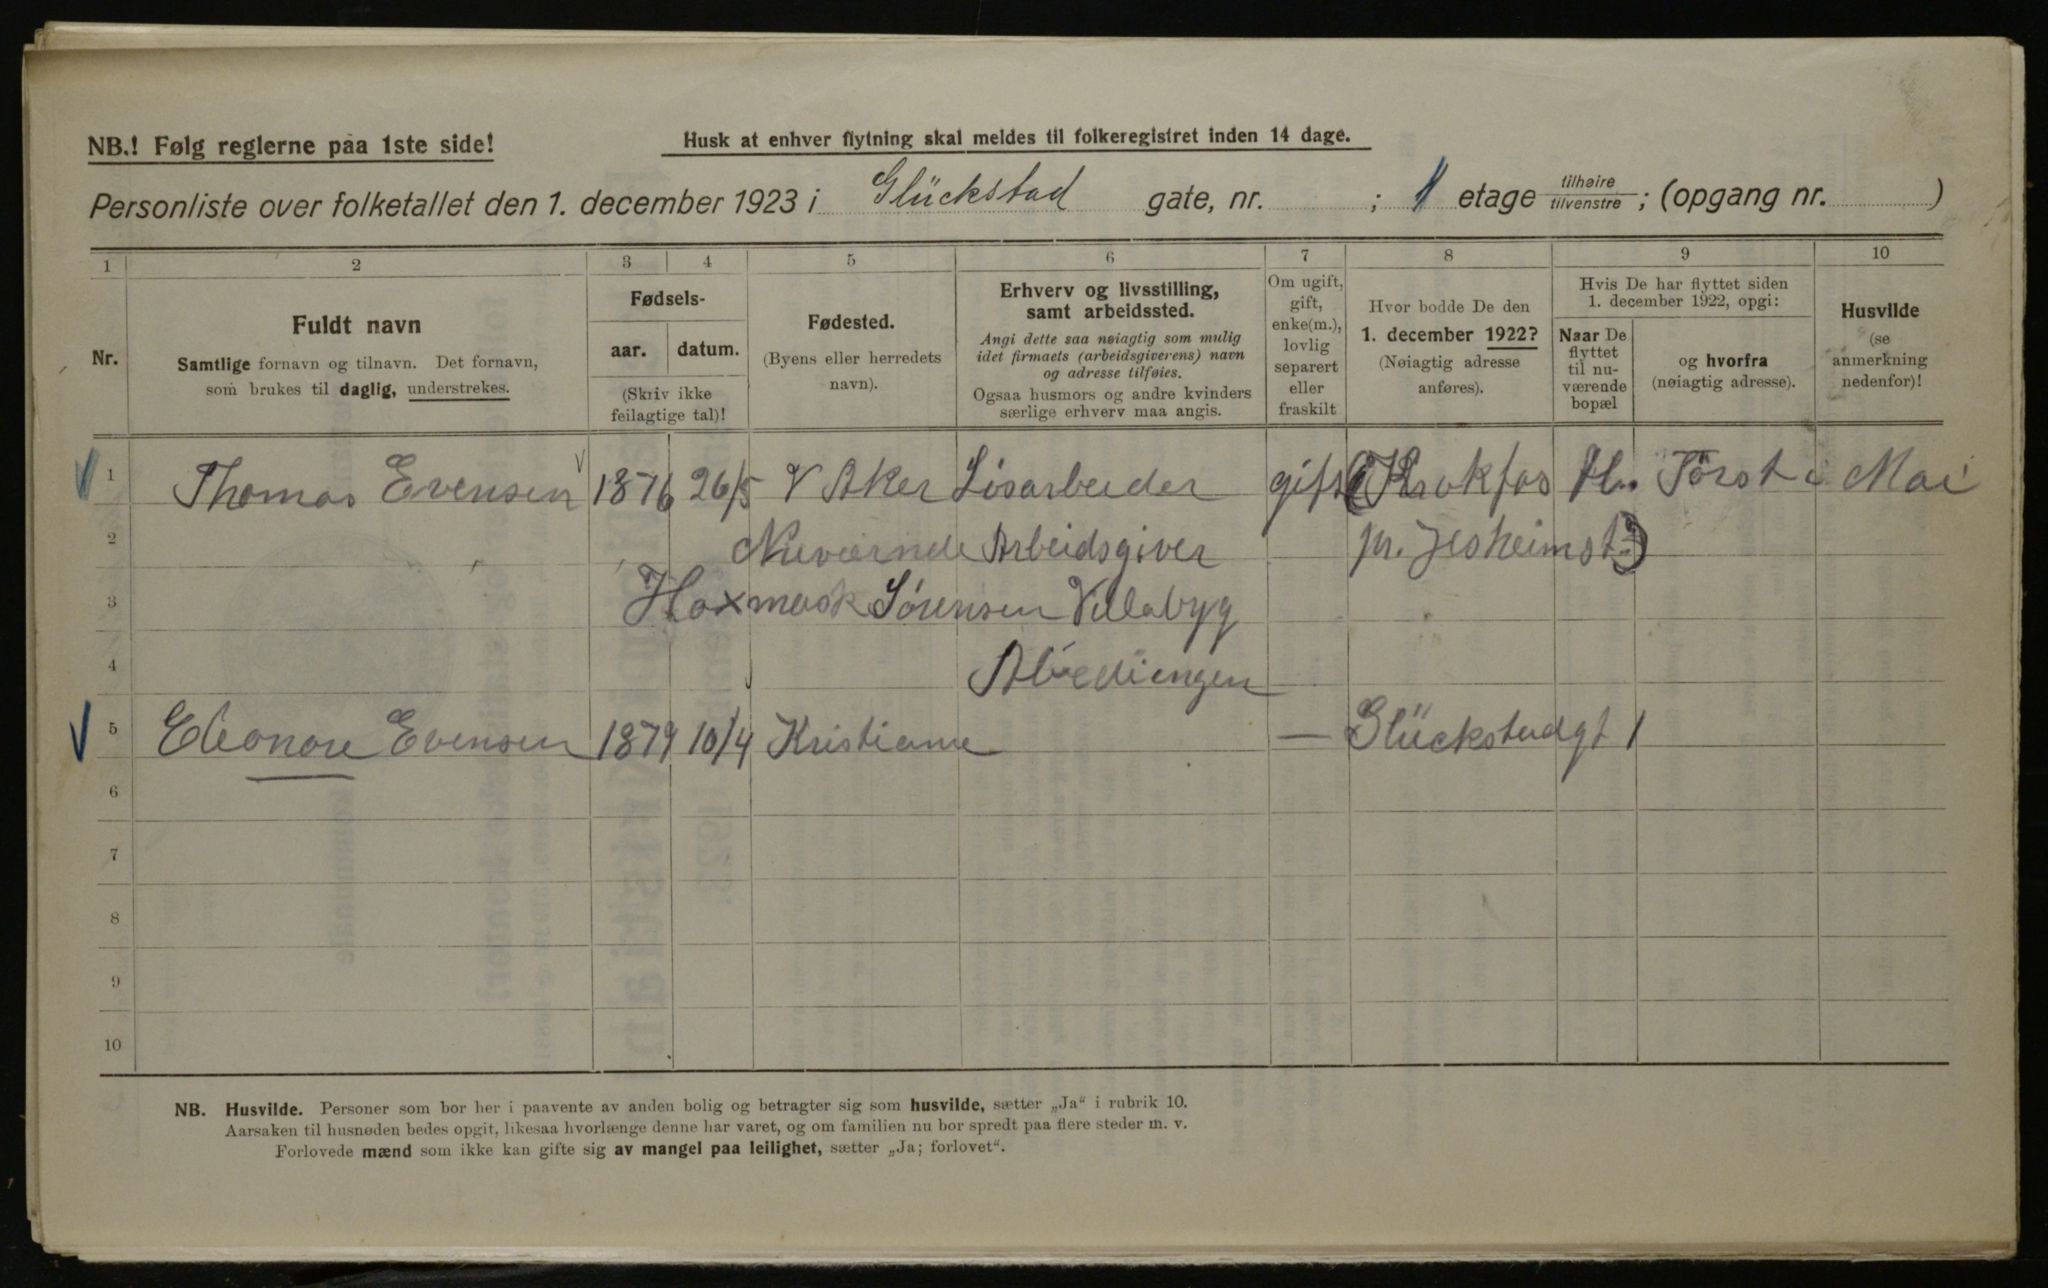 NB.! Følg reglerne paa 1ste side!
Husk at enhver flytning skal meldes til folkeregistret inden 14 dage.
Personliste over folketallet den 1. december 1923 i Glückstad gate, nr. ; 1 etage tilhøire tilvenstre ; (opgang nr. )
1 2 3 4 5 6 7 8 9 10
Nr.
Fuldt navn
Samtlige fornavn og tilnavn. Det fornavn,
som brukes til daglig, understrekes.
Fødsels-
aar. datum.
(Skriv ikke
feilagtige tal)!
Fødested.
(Byens eller herredets
navn).
Erhverv og livsstilling,
samt arbeidssted.
Angi dette saa nøiagtig som mulig
idet firmaets (arbeidsgiverens) navn
og adresse tilføies.
Ogsaa husmors og andre kvinders
særlige erhverv maa angis.
Om ugift,
gift,
enke(m.),
lovlig
separert
eller
fraskilt
Hvor bodde De den
1. december 1922?
(Nøiagtig adresse
anføres).
Hvis De har flyttet siden
1. december 1922, opgi:
Naar De
flyttet
til nu-
værende
bopæl
og hvorfra
(nøiagtig adresse).
Husvilde
(se
anmerkning
nedenfor)!
1 Thomas Evensen 1876 26/5 V Aker Løsarbeider gift (Krokfos Først i Mai
2 Nuværnde Arbeidsgiver pr. Jesheimst)
3 Sørensen Villabyg
4
5 Eleonore Evensen 1879 10/4 Kristiania — Glückstadgt 1
6
7
8
9
10
NB. Husvilde. Personer som bor her i paavente av anden bolig og betragter sig som husvilde, sætter „Ja“ i rubrik 10.
Aarsaken til husnøden bedes opgit, likesaa hvorlænge denne har varet, og om familien nu bor spredt paa flere steder m. v.
Forlovede mænd som ikke kan gifte sig av mangel paa leilighet, sætter „Ja; forlovet“.